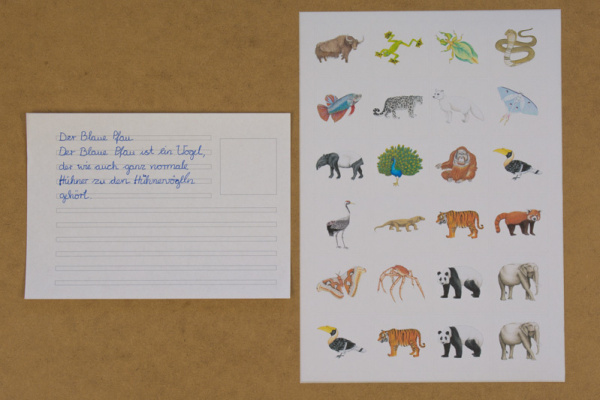 Der Blaue Pfau
Der Blaue Pfau ist ein Vogel,
der wie auch ganz normale
Hühner zu den Hühnervögeln
gehört.